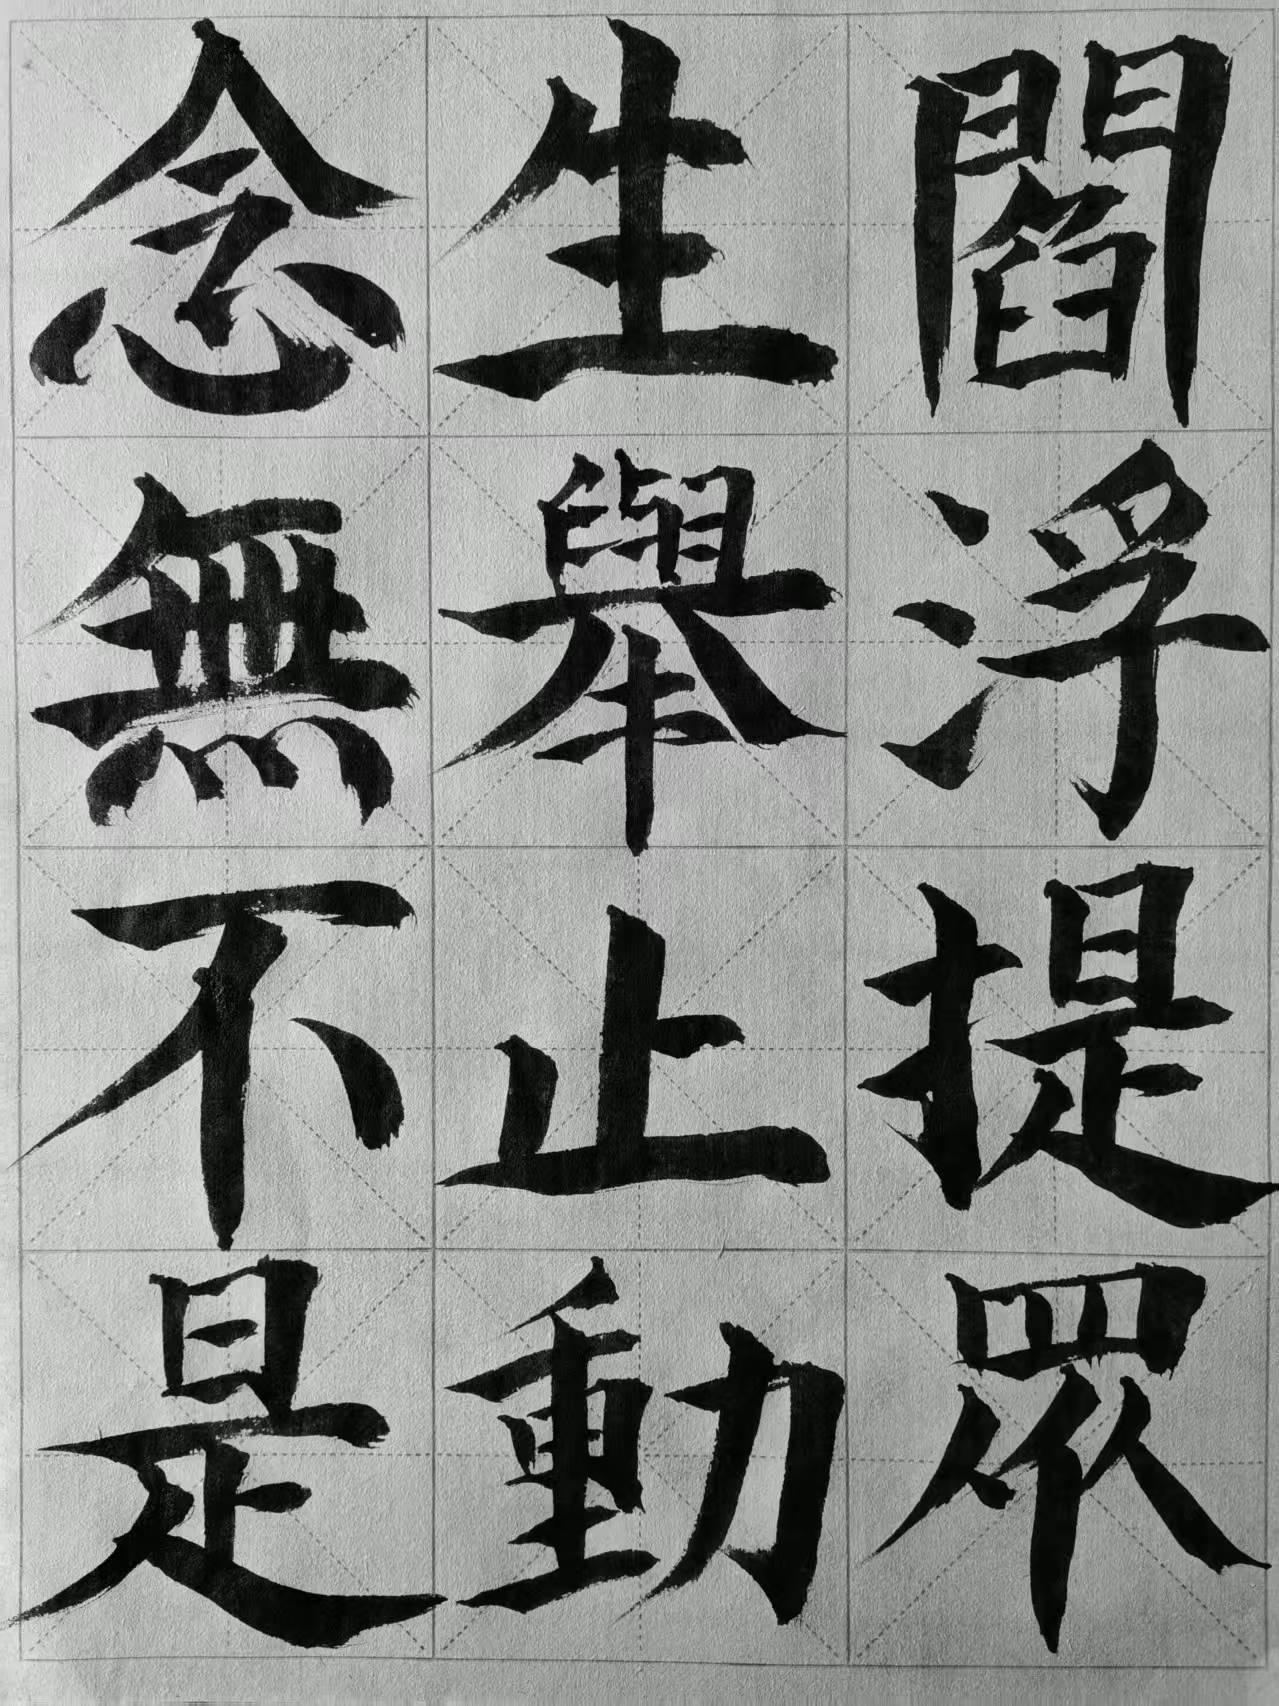 閻浮提眾
生舉止動
念無不是